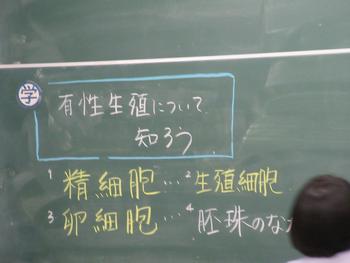 学 有性生殖について
知ろう
1 精細胞…2 生殖細胞
3 卵細胞…4 胚珠のな